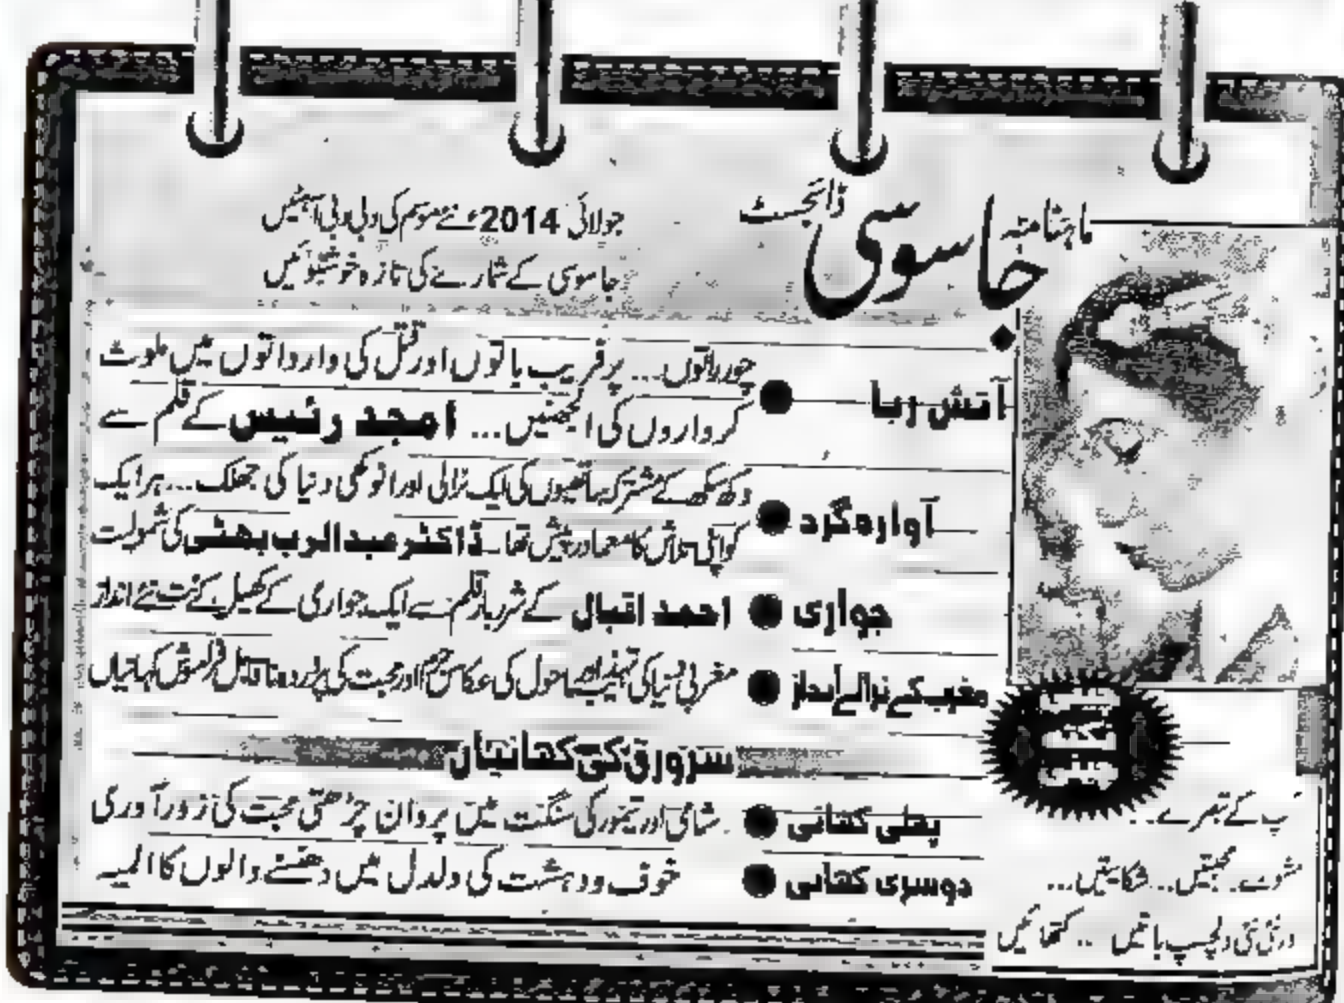 ماہنامہ جاسوسی ڈائجسٹ
جولائی 2014ء نئے موسم کی دبی دبی آہٹیں
جاسوسی کے شمارے کی تازہ خوشبوئیں
آتش ربا
چور راتوں... پرفریب باتوں اور قتل کی وارداتوں میں ملوث
کرداروں کی الجھنیں... امجد رئیس کے قلم سے
آوارہ گرد
دکھ سکھ کے مشترکہ ساتھیوں کی ایک نرالی اور انوکھی دنیا کی جھلک... ہر ایک
کو اپنی تلاش کا معما درپیش تھا۔ ڈاکٹر عبدالرب بھٹی کی شمولیت
جواری
احمد اقبال کے شرربار قلم سے ایک جواری کے کھیل کے نت نئے انداز
مغرب کے نرالے انداز
مغربی دنیا کی تہذیب اور ماحول کی عکاس جرم اور محبت کی ناقابل فراموش کہانیاں
سرورق کی کہانیاں
پہلی کہانی
شامی اور تیمور کی سنگت میں پروان چڑھتی محبت کی زور آوری
دوسری کہانی
خوف و دہشت کی دلدل میں دھنسنے والوں کا المیہ
چینی
نکتہ
چینی
آپ کے تبصرے...
مشورے... محبتیں... شکایتیں...
اور نئی نئی دلچسپ باتیں... کتھائیں